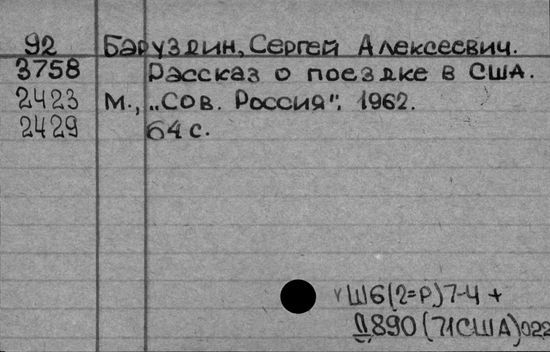 92 Баруздин, Сергей Алексеевич.
3758 Рассказ о поездке в США.
2423 М., „Сов. Россия", 1962.
2429 64 с.
√Ш6(2=Р)7-4 +
Д890(71США)022